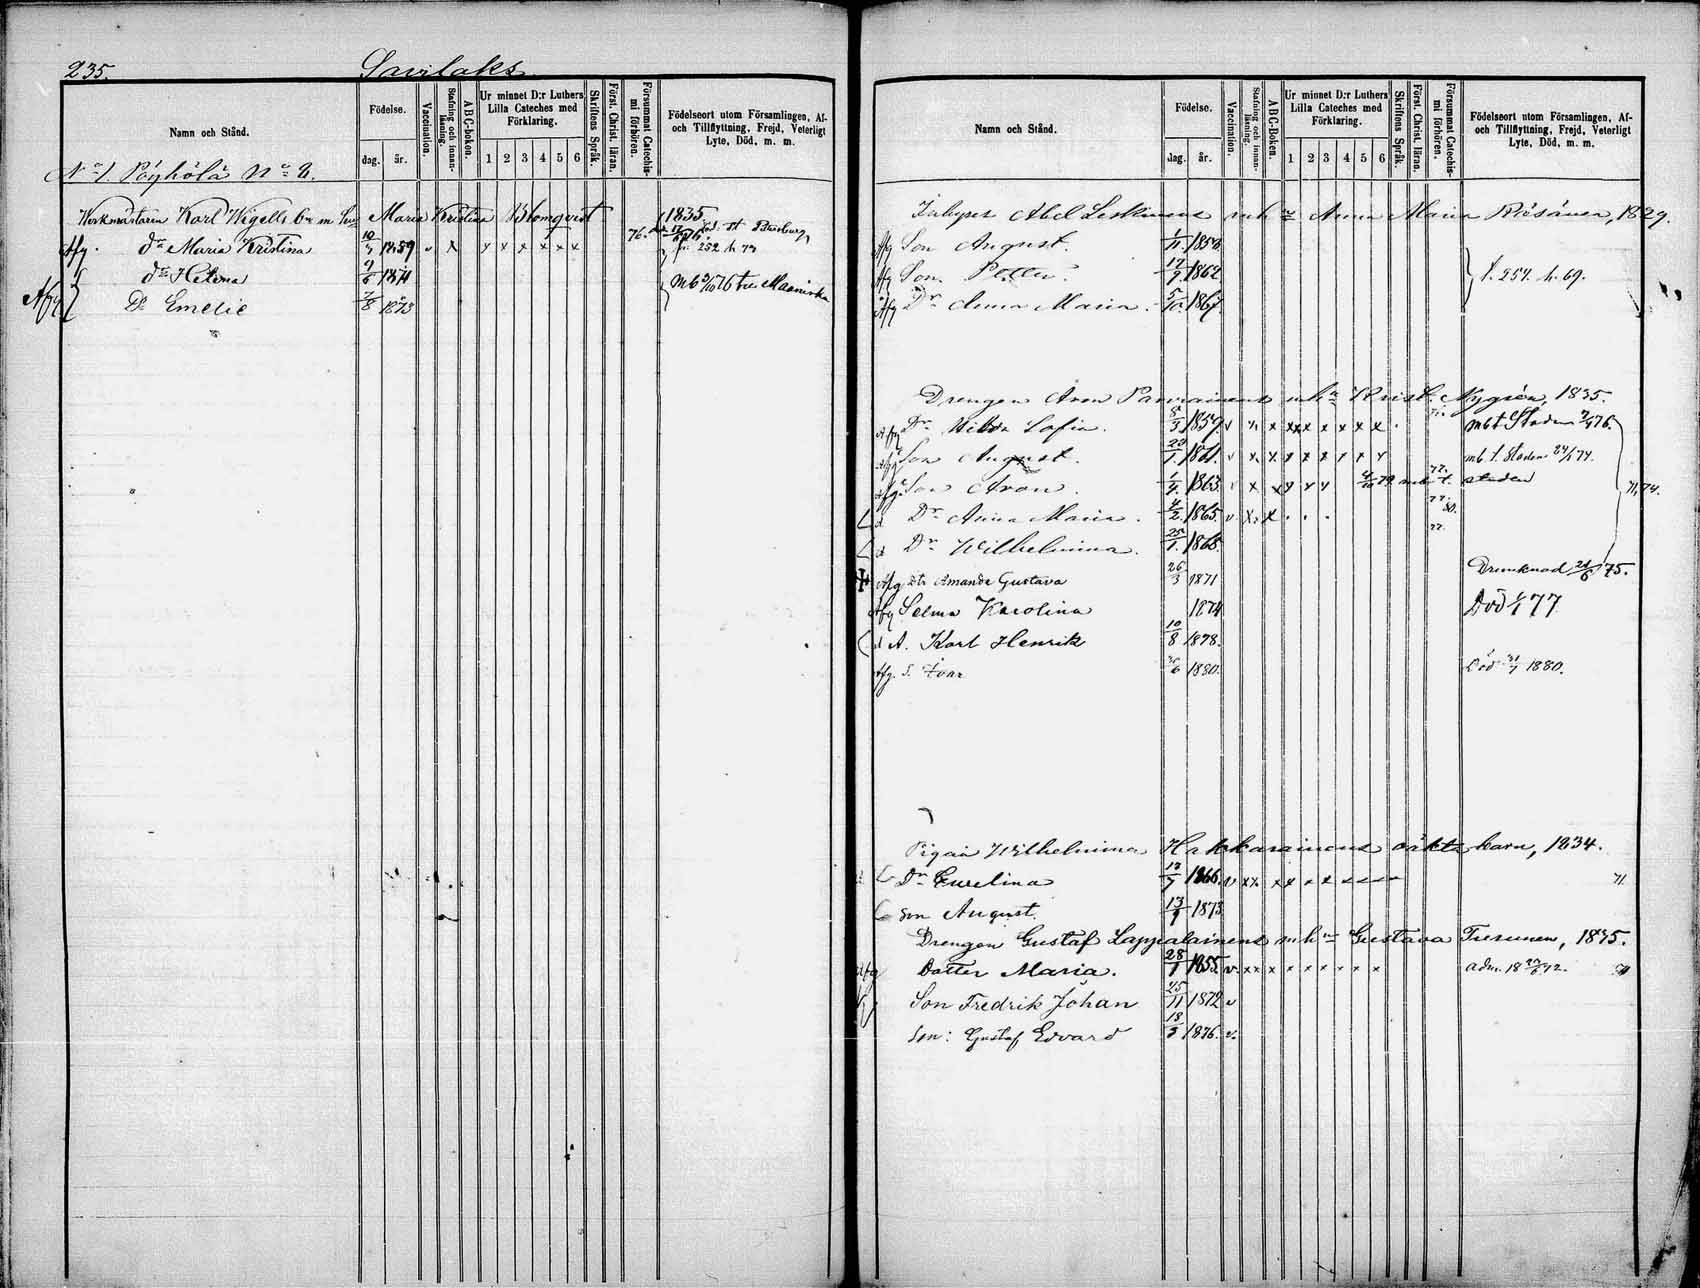 235.
Savilaks
Namn och Stånd.
Födelse.
dag.
år.
Vaccination.
Stafning och innan-läsning.
ABC-boken.
Ur minnet D:r Luthers Lilla Cateches med Förklaring.
1 2 3 4 5 6
Skriftens Språk.
Först. Christ. läran.
Försummat Catechis-mi förhören.
Födelseort utom Församlingen, Af- och Tillflyttning, Frejd, Veterligt Lyte, Död, m. m.
N:o 1. Pöyhölä N:o 2.
Werkmästaren Karl Wigells b:n m hu Maria Kristina Blomqvist 1835
Afg. d:r Maria Kristina 10/3 1859 v x x x x x x x 76. St Petersburg
252 h 73
d:r Helena 9/6 1871
Afg D:r Emelie 7/8 1873 mb 3/10 76 t Maaninka
Namn och Stånd.
Födelse.
dag.
år.
Vaccination.
Stafning och innan-läsning.
ABC-Boken.
Ur minnet D:r Luthers Lilla Cateches med Förklaring.
1 2 3 4 5 6
Skriftens Språk.
Först. Christ. läran.
Försummat Catechis-mi förhören.
Födelseort utom Församlingen, Af- och Tillflyttning, Frejd, Veterligt Lyte, Död, m. m.
Inhyses Abel Leskinens m h u Anna Maria Räsänen, 1829.
Afg Son August. 1/11 1858
Afg Son Petter. 17/9 1862 f. 257. h. 69.
Afg D:r Anna Maria. 5/10 1867.
Drengen Aron Parviainens m h u Krist. Nygrén, 1835.
Afg D:r Hilda Sofia. 8/3 1859 v x x xx x x x x x mb t Staden 7/9 76.
Afg Son August. 20/1 1861. v x x x x x x x x mb t. Staden 24/1 74.
Afg Son Aron. 1/4 1863. x x x x x 79 mb t. staden 71, 74.
D:r Anna Maria. 4/2 1865. v x x . . . 77. 80.
D:r Wilhelmina. 25/1 1868. 77.
Afg d:r Amanda Gustava 26/3 1871 Drunknad 24/6 75.
Afg Selma Karolina 1874 Död 77
d A. Karl Henrik 10/8 1878.
Afg. S. Ivar 6 1880. Död 1880.
Pigan Wilhelmina Hakkarainens oäkta barn, 1834.
D:r Evelina 12/7 1866. v xx x x x x 71.
Son August. 13/9 1873
Drengen Gustaf Lappalainens m h u Gustava Turunen, 1835.
Afg Dotter Maria. 28/1 1855. v. xx x x x x x x x adm. 18 72.
Son Fredrik Johan 25/11 1872 v
Son: Gustaf Edvard 18/3 1876. v.